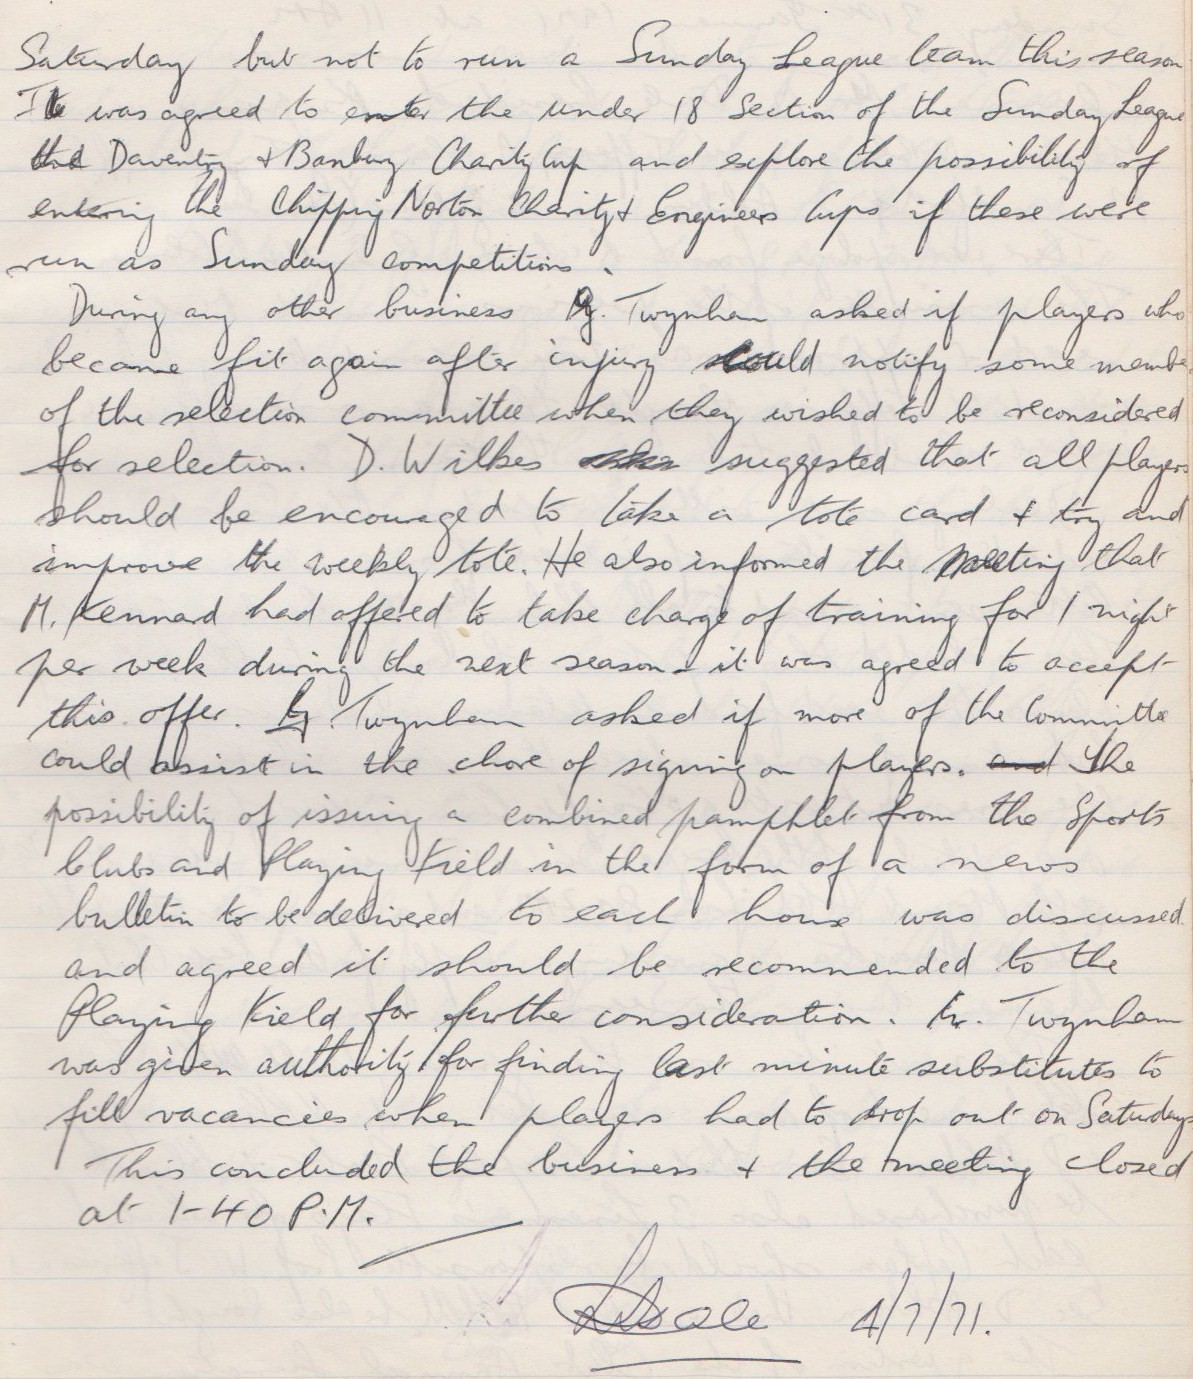 Saturday but not to run a Sunday League team this season
It was agreed to enter the under 18 Section of the Sunday League
Daventry & Banbury Charity Cup and explore the possibility of
entering the Chipping Norton Charity & Engineers Cups if these were
run as Sunday competitions.
During any other business Twynham asked if players who
became fit again after injury could notify some membe
of the selection committee when they wished to be reconsidered
for selection. D. Wilkes suggested that all players
should be encouraged to take a tote card & try and
improve the weekly tote. He also informed the meeting that
M. Kennard had offered to take charge of training for 1 night
per week during the next season - it was agreed to accept
this offer. Twynham asked if more of the Committee
could assist in the chore of signing on players. and The
possibility of issuing a combined pamphlet from the Sports
Clubs and Playing Field in the form of a news
bulletin to be delivered to each house was discussed
and agreed it should be recommended to the
Playing Field for further consideration. Twynham
was given authority for finding last minute substitutes to
fill vacancies when players had to drop out on Saturdays
This concluded the business & the meeting closed
at 1-40 P.M.
4/7/71.